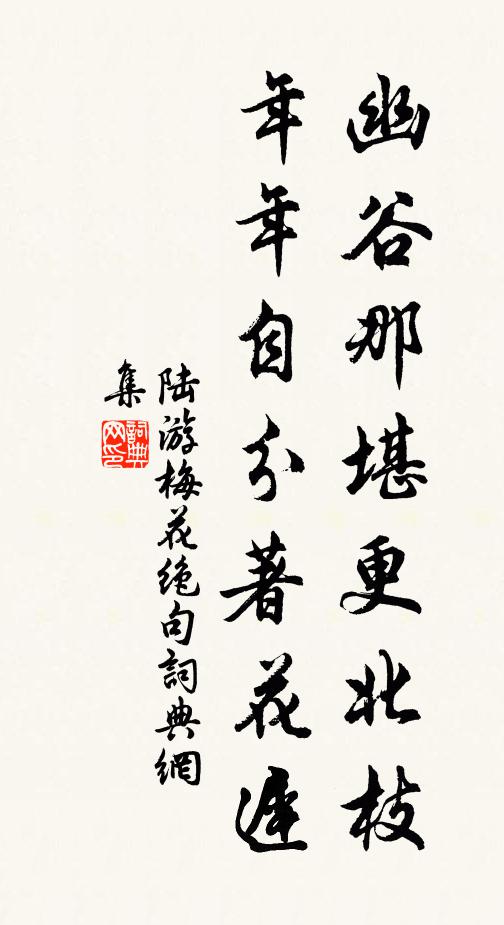 幽谷那堪更北枝
年年自分著花遲
陸游梅花绝句詞典網
集
詞典网印